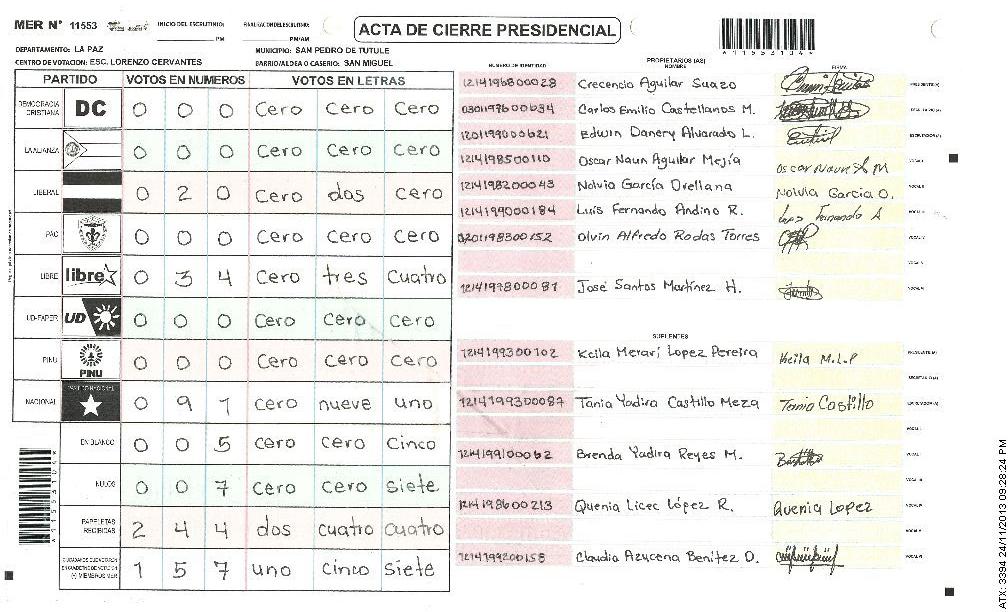 MER N° 11553
INICIO DEL ESCRUTINIO: PM
FINALIZACION DEL ESCRUTINIO: PM/AM
ACTA DE CIERRE PRESIDENCIAL
DEPARTAMENTO: LA PAZ
MUNICIPIO: SAN PEDRO DE TUTULE
CENTRO DE VOTACION: ESC. LORENZO CERVANTES
BARRIO/ALDEA O CASERIO: SAN MIGUEL
PARTIDO VOTOS EN NUMEROS VOTOS EN LETRAS
DEMOCRACIA CRISTIANA DC 0 0 0 Cero Cero Cero
LA ALIANZA 0 0 0 Cero Cero Cero
LIBERAL 0 2 0 Cero dos cero
PAC 0 0 0 Cero Cero Cero
LIBRE libre 0 3 4 Cero tres Cuatro
UD-FAPER UD 0 0 0 Cero Cero Cero
PINU PINU 0 0 0 Cero Cero Cero
NACIONAL PARTIDO NACIONAL 0 9 1 Cero nueve uno
EN BLANCO 0 0 5 cero cero Cinco
NULOS 0 0 7 Cero Cero Siete
PAPELETAS RECIBIDAS 2 4 4 dos cuatro cuatro
1 5 7 uno cinco siete
NUMERO DE IDENTIDAD PROPIETARIOS (AS) NOMBRE FIRMA
1214196800028 Crecencio Aguilar Suazo PRESIDENTE(A)
0301197600634 Carlos Emilio Castellanos M. SECRETARIO(A)
1201199000621 Edwin Danery Alvarado L. ESCRUTADOR(A)
1214198500110 Oscar Naun Aguilar Mejía Oscar Naun A M VOCAL I
1214198200043 Nolvia García Orellana Nolvia Garcia O. VOCAL II
1214199000184 Luis Fernando Andino R. Luis Fernando A
0201198300152 Olvin Alfredo Rodas Torres
1214197800087 José Santos Martínez H.
SUPLENTES
1214199300102 Keila Merarí Lopez Pereira Keila M.L.P PRESIDENTE(A)
SECRETARIO(A)
1214199300087 Tania Yadira Castillo Meza Tania Castillo ESCRUTADOR(A)
1214199100062 Brenda Yadira Reyes M.
1214198600213 Quenia Licec López R. Quenia Lopez
1214199200158 Claudia Azucena Benítez D.
ATX: 3394 24/11/2013 09:28:24 PM